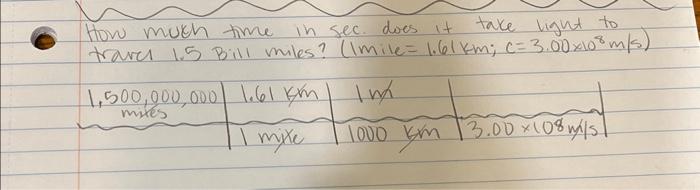 How much time in sec. does it take light to
travel 1.5 Bill miles? (1mile = 1.61 km; c = 3.00x10⁸ m/s)
1,500,000,000 miles | 1.61 km | 1 m |
| 1 mile | 1000 km | 3.00 x108 m/s